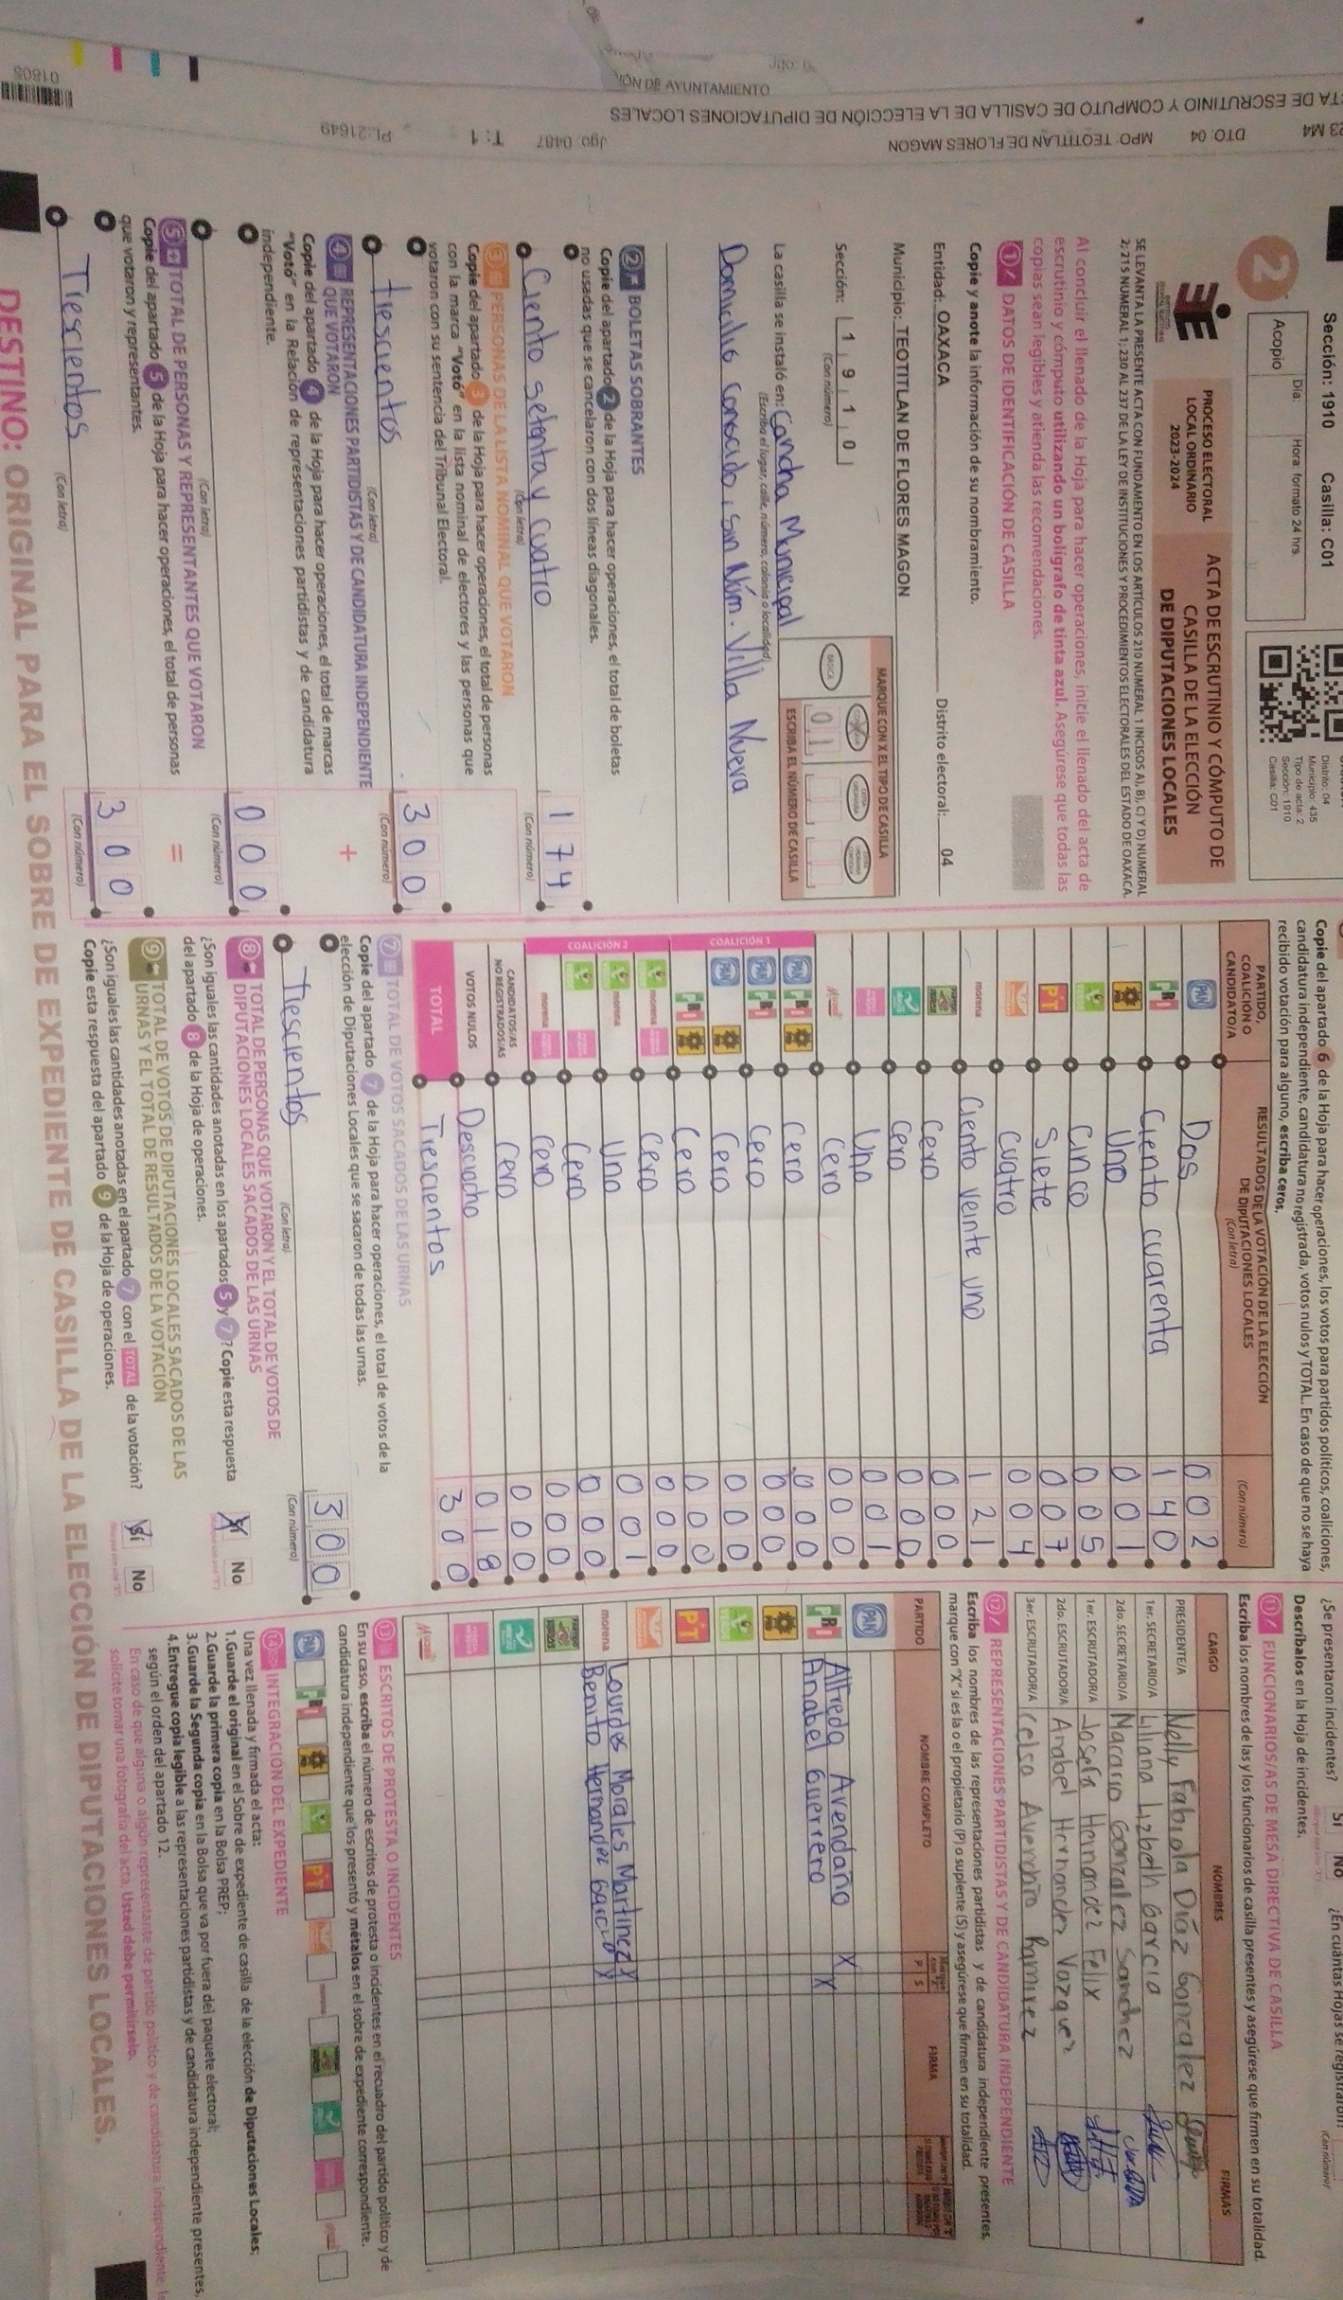 Sección: 1910 Casilla: C01
Día: Hora: formato 24 hrs.
Acopio
2
Distrito: 04
Municipio: 435
Tipo de acta: 2
Sección: 1910
Casilla: C01
PROCESO ELECTORAL
LOCAL ORDINARIO
2023-2024
ACTA DE ESCRUTINIO Y CÓMPUTO DE
CASILLA DE LA ELECCIÓN
DE DIPUTACIONES LOCALES
SE LEVANTA LA PRESENTE ACTA CON FUNDAMENTO EN LOS ARTÍCULOS 210 NUMERAL 1 INCISOS A), B), C) Y D) NUMERAL
2; 215 NUMERAL 1; 230 AL 237 DE LA LEY DE INSTITUCIONES Y PROCEDIMIENTOS ELECTORALES DEL ESTADO DE OAXACA.
Al concluir el llenado de la Hoja para hacer operaciones, inicie el llenado del acta de
escrutinio y cómputo utilizando un bolígrafo de tinta azul. Asegúrese que todas las
copias sean legibles y atienda las recomendaciones.
1 DATOS DE IDENTIFICACIÓN DE CASILLA
Copie y anote la información de su nombramiento.
Entidad: OAXACA Distrito electoral: 04
Municipio: TEOTITLAN DE FLORES MAGON
Sección: 1 9 1 0
(Con número)
MARQUE CON X EL TIPO DE CASILLA
BÁSICA
0 1
ESCRIBA EL NÚMERO DE CASILLA
La casilla se instaló en: Cancha Municipal
(Escriba el lugar, calle, número, colonia o localidad)
Domicilio Conocido, Sin Núm. Villa Nueva
2 BOLETAS SOBRANTES
Copie del apartado 2 de la Hoja para hacer operaciones, el total de boletas
no usadas que se cancelaron con dos líneas diagonales.
Ciento setenta y cuatro 174
(Con letra) (Con número)
3 PERSONAS DE LA LISTA NOMINAL QUE VOTARON
Copie del apartado 3 de la Hoja para hacer operaciones, el total de personas
con la marca "Votó" en la lista nominal de electores y las personas que
votaron con su sentencia del Tribunal Electoral.
trescientos 300
(Con letra) (Con número)
4 REPRESENTACIONES PARTIDISTAS Y DE CANDIDATURA INDEPENDIENTE
QUE VOTARON +
Copie del apartado 4 de la Hoja para hacer operaciones, el total de marcas
"Votó" en la Relación de representaciones partidistas y de candidatura
independiente.
000
(Con letra) (Con número)
5 TOTAL DE PERSONAS Y REPRESENTANTES QUE VOTARON =
Copie del apartado 5 de la Hoja para hacer operaciones, el total de personas
que votaron y representantes.
Trescientos 300
(Con letra) (Con número)
Copie del apartado 6 de la Hoja para hacer operaciones, los votos para partidos políticos, coaliciones,
candidatura independiente, candidatura no registrada, votos nulos y TOTAL. En caso de que no se haya
recibido votación para alguno, escriba ceros.
PARTIDO,
COALICIÓN O
CANDIDATO/A
RESULTADOS DE LA VOTACIÓN DE LA ELECCIÓN
DE DIPUTACIONES LOCALES
(Con letra) (Con número)
PAN Dos 002
PRI Ciento cuarenta 140
Uno 001
Cinco 005
PT Siete 007
Cuatro 004
morena Ciento veinte uno 121
Cero 000
Cero 000
Uno 001
Cero 000
COALICIÓN 1
PAN PRI Cero 000
PAN PRI Cero 000
PAN Cero 000
PRI Cero 000
COALICIÓN 2
morena Cero 000
morena Uno 001
Cero 000
morena Cero 000
CANDIDATOS/AS
NO REGISTRADOS/AS Cero 000
VOTOS NULOS Desciocho 018
TOTAL Trescientos 300
7 TOTAL DE VOTOS SACADOS DE LAS URNAS
Copie del apartado 7 de la Hoja para hacer operaciones, el total de votos de la
elección de Diputaciones Locales que se sacaron de todas las urnas.
Trescientos 300
(Con letra) (Con número)
8 TOTAL DE PERSONAS QUE VOTARON Y EL TOTAL DE VOTOS DE
DIPUTACIONES LOCALES SACADOS DE LAS URNAS
¿Son iguales las cantidades anotadas en los apartados 5 y 7? Copie esta respuesta
del apartado 8 de la Hoja de operaciones.
Sí No
9 TOTAL DE VOTOS DE DIPUTACIONES LOCALES SACADOS DE LAS
URNAS Y EL TOTAL DE RESULTADOS DE LA VOTACIÓN
¿Son iguales las cantidades anotadas en el apartado 7 con el TOTAL de la votación?
Copie esta respuesta del apartado 9 de la Hoja de operaciones.
Sí No
¿Se presentaron incidentes? Sí No ¿En cuántas Hojas se registraron?
Descríbalos en la Hoja de incidentes.
11 FUNCIONARIOS/AS DE MESA DIRECTIVA DE CASILLA
Escriba los nombres de las y los funcionarios de casilla presentes y asegúrese que firmen en su totalidad.
CARGO NOMBRES FIRMAS
PRESIDENTE/A Nelly Fabiola Díaz Gonzalez
1er. SECRETARIO/A Liliana Lizbeth Garcia
2do. SECRETARIO/A Macario Gonzalez Sanchez
1er. ESCRUTADOR/A Josefa Hernandez Felix
2do. ESCRUTADOR/A Anabel Hernandez Vazquez
3er. ESCRUTADOR/A Celso Avendaño Ramirez
12 REPRESENTACIONES PARTIDISTAS Y DE CANDIDATURA INDEPENDIENTE
Escriba los nombres de las representaciones partidistas y de candidatura independiente presentes,
marque con "X" si es la o el propietario (P) o suplente (S) y asegúrese que firmen en su totalidad.
PARTIDO NOMBRE COMPLETO P S FIRMA
PAN
PRI Alfreda Avendaño X
Anabel Guerrero X
PT
morena Lourdes Morales Martinez X
Benito Hernandez Garcia X
13 ESCRITOS DE PROTESTA O INCIDENTES
En su caso, escriba el número de escritos de protesta o incidentes en el recuadro del partido político y de
candidatura independiente que los presentó y métalos en el sobre de expediente correspondiente.
14 INTEGRACIÓN DEL EXPEDIENTE
Una vez llenada y firmada el acta:
1.Guarde el original en el Sobre de expediente de casilla de la elección de Diputaciones Locales;
2.Guarde la primera copia en la Bolsa PREP;
3.Guarde la Segunda copia en la Bolsa que va por fuera del paquete electoral;
4.Entregue copia legible a las representaciones partidistas y de candidatura independiente presentes,
según el orden del apartado 12.
En caso de que alguna o algún representante de partido político y de candidatura independiente
solicite tomar una fotografía del acta. Usted debe permitírselo.
DESTINO: ORIGINAL PARA EL SOBRE DE EXPEDIENTE DE CASILLA DE LA ELECCIÓN DE DIPUTACIONES LOCALES.
DTO. 04 MPO. TEOTITLAN DE FLORES MAGON Jgo. 0487 T: 1 PL: 21649
DE ESCRUTINIO Y COMPUTO DE CASILLA DE LA ELECCIÓN DE DIPUTACIONES LOCALES
DE AYUNTAMIENTO
01805